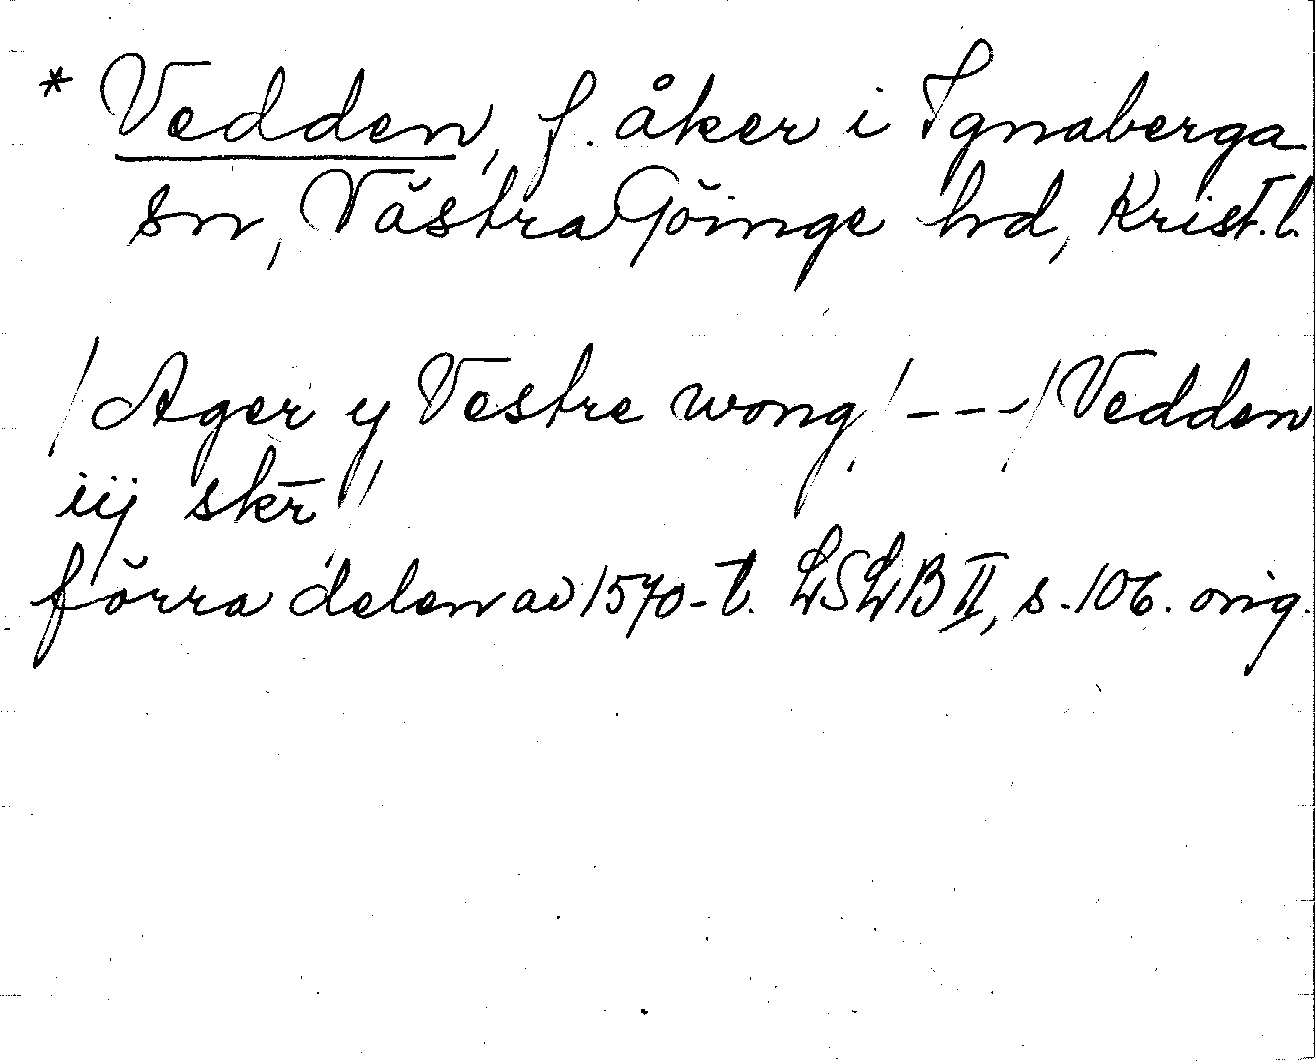 * Vedden, f. åker i Ignaberga
sn, Västra Göinge hd, Krist.l.
/Ager y Vestre wong/ --- /Vedden
iij skr̄/
förra delen av 1570-t. LSLB II, s. 106. orig.